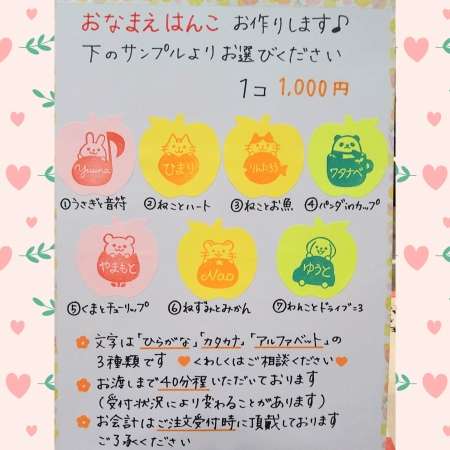 おなまえはんこ お作りします♪
下のサンプルよりお選びください
1コ 1,000円
Yuuna
ひまり
りんたろう
ワタナベ
①うさぎと音符
②ねことハート
③ねことお魚
④パンダinカップ
やまもと
Nao
ゆうと
⑤くまとチューリップ
⑥ねずみとみかん
⑦わんことドライブ=3
文字は「ひらがな」「カタカナ」「アルファベット」の
3種類です ♥くわしくはご相談ください♥
お渡しまで40分程いただいております
(受付状況により変わることがあります)
お会計はご注文受付時に頂戴しております
ご了承ください